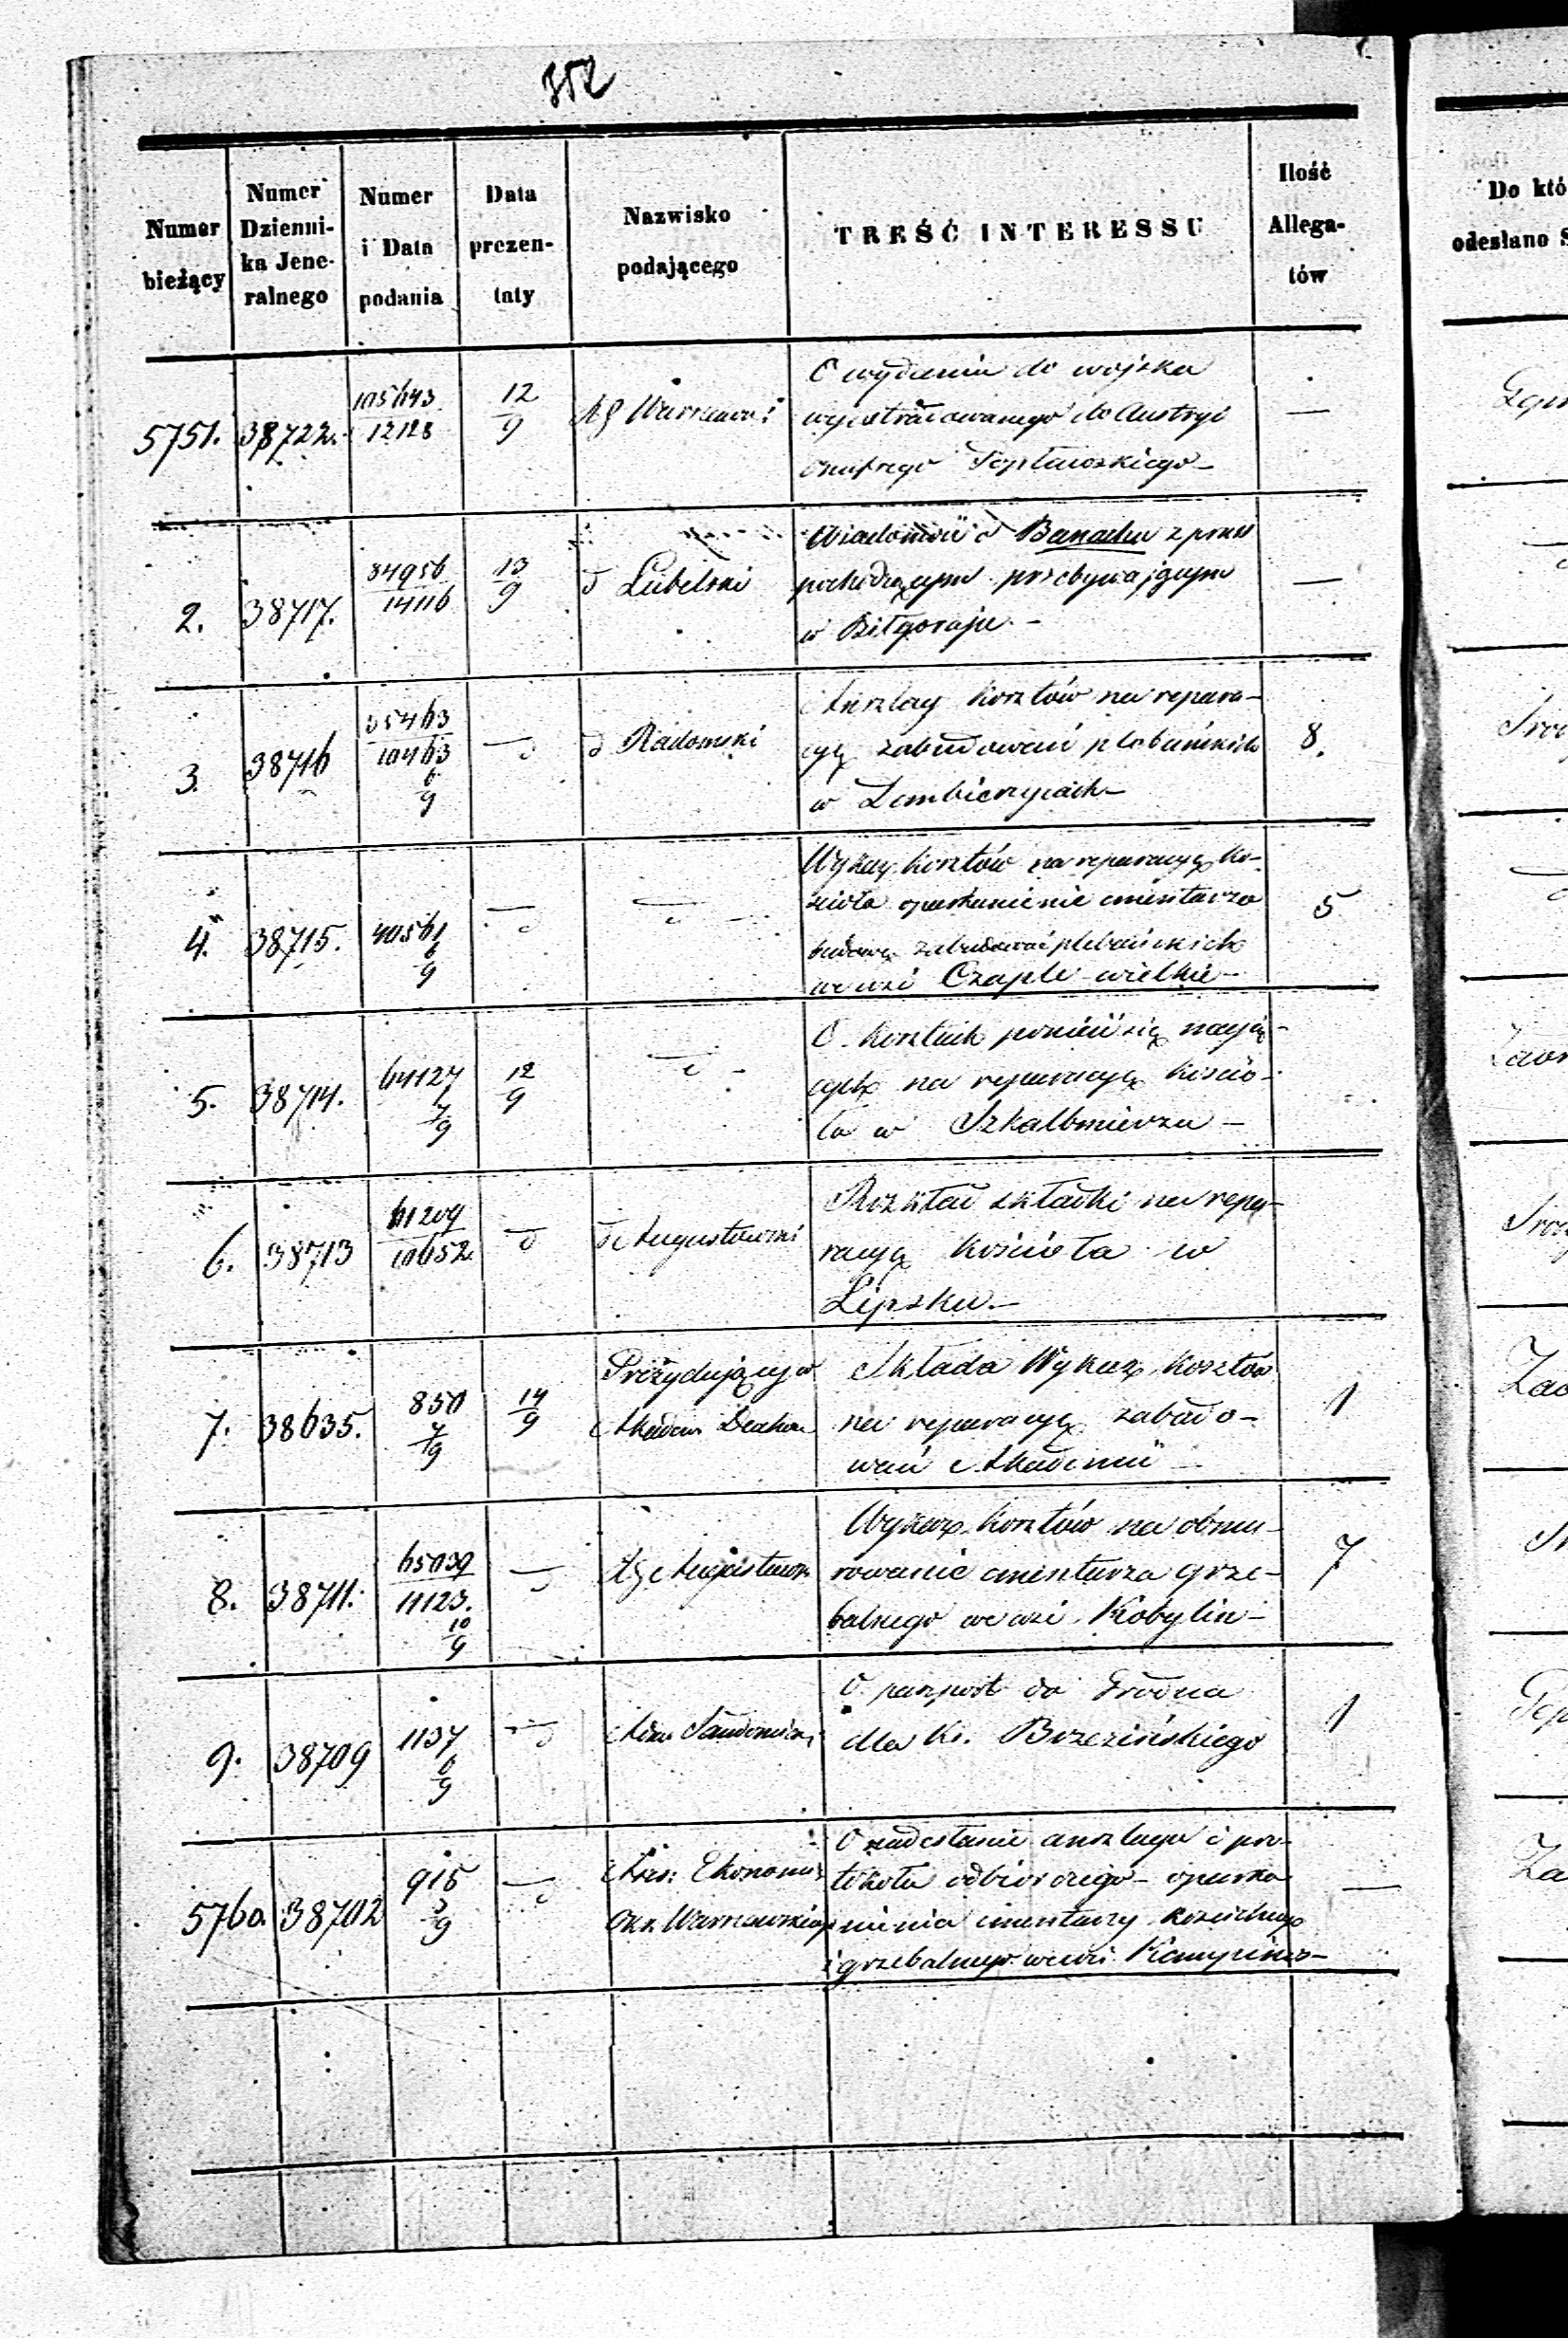 352
Numer bieżący
Numer Dzienni-ka Jene-ralnego
Numer i Data podania
Data prezen-taty
Nazwisko podającego
TREŚĆ INTERESSU
Ilość Allega-tów
Do któ
odesłano S
5751. 38722. 105643 12128 12/9 RG Warszawski
O wydaniu do wojska
wyextradowanego do Austryi
Onufrego Popławskiego —
—
2. 38717. 84956/14116 13/9 d Lubelski
Wiadomość o Banachu z pruss
pochodzącym przebywającym
w Biłgoraju —
—
3. 38716 35463/10463 6/9 — d Radomski
Anszlag kosztów na repara-
cyę zabudowań plebańskich
w Dembierzycach —
8.
4. 38715. 40561 6/9 —
Wykaz kosztów na reparacyę ko-
ścioła oparkanienie cmentarza
budowę zabudowań plebańskich
we wsi Czaple wielkie —
5
5. 38714. 64127 7/9 12/9
O kosztach ponieść się mają-
cych na reparacyę kościo-
ła w Szkalbmierzu —
6. 38713 61209/10652 d d Augustowski
Rozkład składki na repa-
racyę kościoła w
Lipsku —
7. 38635. 850 7/9 14/9 Prezydujący w
Akadem Duchow
Składa Wykaz kosztów
na reparacyę zabudo-
wań Akademii —
1
8. 38711. 65039/11123. 10/9 — RG Augustowsk
Wykaz kosztów na obmu-
rowanie cmentarza grze-
balnego we wsi Kobylin —
7
9. 38709 1137 6/9 — Adm Sandomierski
O paszport do Grodna
dla Ks. Brzezińskiego
1
5760. 38702 915 3/9 — Assr: Ekonomicz
Okr. Warszawskiego
O nadesłanie anszlagu i pro-
tokołu odbiorczego oparka
nienia cmentarzy kościelnego
i grzebalnego we wsi Kampinos —
—